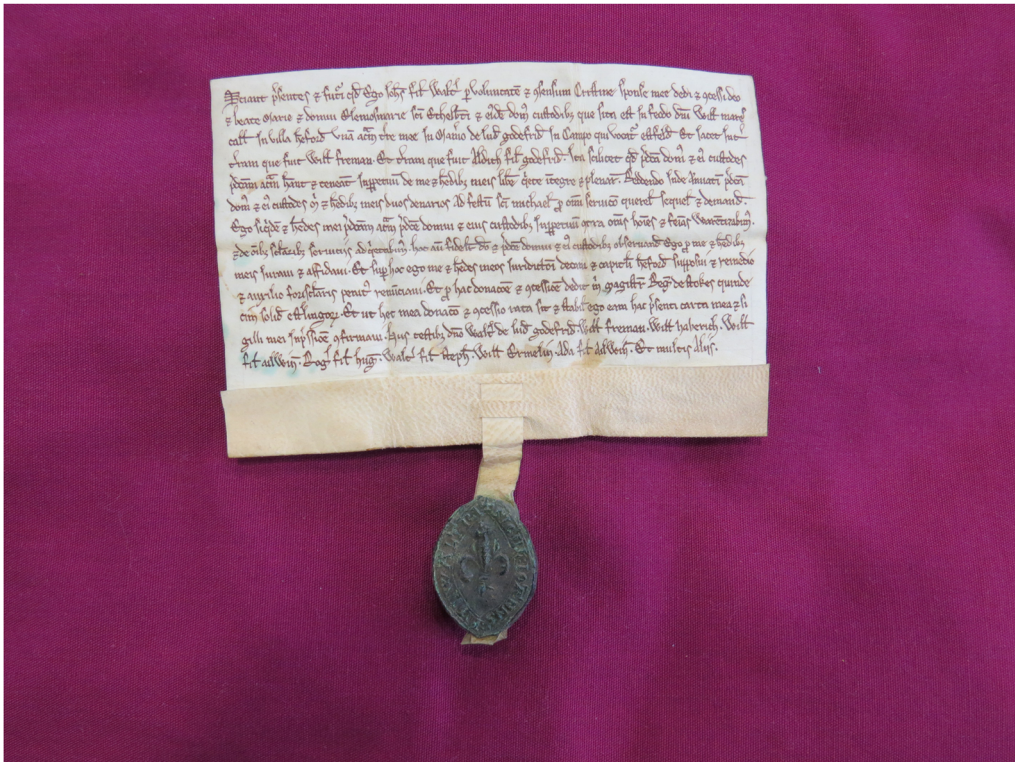 Sciant p̄sentes ⁊ fut̉i qd̄ Ego Joh̄s fil̄ Walt̉ p̱ voluntatē ⁊ ɔsensum Cristine sponse mee dedi ⁊ ɔcessi deo
⁊ beate Marie ⁊ domui Elemosinarie sc̄i Ethelb̉ti ⁊ eiusdē dom̄ custodib; que sita est in feodo dn̄i Will̄ mares
call̄ in villa h̉eford vnā ac̉m t̉re mee in Man̉io de lud̄ godefrid̄ in Campo qui vocat̉ estfeld̄. Et jacet int̉
t̉ram que fuit Will̄ freman. Et t̉ram que fuit Aldith fil̄ godefrid̄. Ita scilicet qd̄ p̄dc̄a dom̄ ⁊ ei᷒ custodes
p̄dc̄am ac̉m h̄ant ⁊ teneant inp̱petuū de me ⁊ h̉edib; meis lib̉e q̇ete īntegre ⁊ plenar̄. Reddendo inde Annuatī p̄dc̄ā
dom̄ ⁊ ei᷒ custodes ṁ ⁊ h̉edib; meis duos denarios Ad festū sc̄i Michael̄ p̱ om̄i servicio querel̄ sequel̄ ⁊ demand̄.
Ego siq̇dē ⁊ h̉edes mei p̄dc̄am ac̉m p̄dc̄e domui ⁊ eius custodib; inp̱petuū cont̉ om̄s hōīes ⁊ feīas Warentizabim᷒.
⁊ de om̄ib; sclarib; serviciis adq̇etabim᷒. hoc aut̄ fidelit̉ deo ⁊ p̄dc̄e domui ⁊ ei᷒ custodib; observand̄ Ego p̱ me ⁊ h̉edib;
meis juravi ⁊ affidavi. Et sup̱ hoc ego me ⁊ h̉edes meos juridictōī decani ⁊ capit̉li h̉eford̄ supposui ⁊ remedio
⁊ auxilio foris sclaris penit᷒ renūciavi. Et p̱ hac donacōē ⁊ ɔcessiōē dedit ṁ magist̉ Rog̉ de stokes quinde
cim solid̄ est̉lingor̄. Et ut hec mea donac̄o ⁊ ɔcessio rata sit ⁊ stabil̄ ego eam hac p̄senti carta mea ⁊ si
gilli mei inp̄ssiōē ɔfirmavi. Hiis testib; dn̄o Walt̉o de lud̄ godefrid̄. Will̄ freman. Will̄ haberich. Will̄
fil̄ adwein̄. Rog̉ fil̄ huḡ. Walt̉ fil̄ steph̄. Will̄ Ermelin. Ada fil̄ adwein̄. Et multis Aliis.